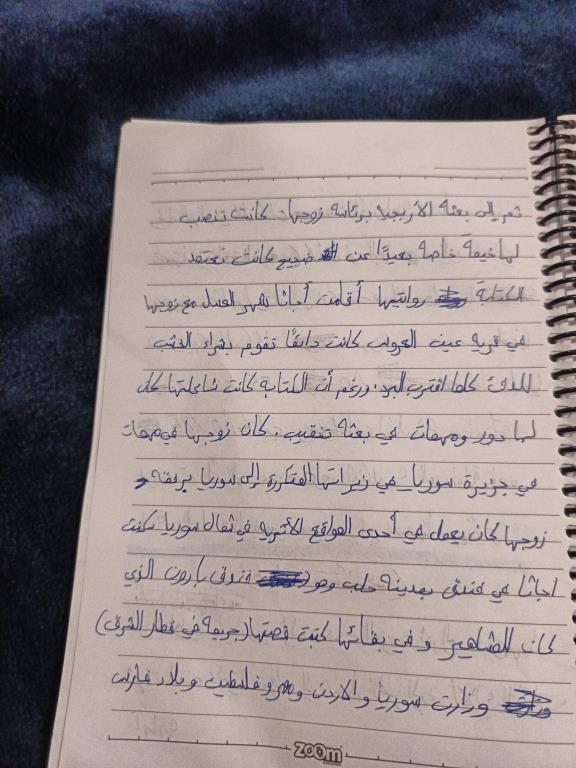 تمر إلى بعثة الأثرية برئاسة زوجها. كانت تنصب
لها خيمة خاصة بعيدًا عن ضجيج كانت تعتمد
الكتابة روايتها أقامت أجاثا شهر العسل مع زوجها
في قرية عين العروس كانت دائمًا تقوم بشراء الحطب
للدفئ كلما اقترب البرد. ورغم أن الكتابة كانت شاغلتها كان
لها دور ومهمات في بعثة تنقيب. كان زوجها في مهمات
في جزيرة سوريا_ في زيراتها المتكررة إلى سوريا برفقة
زوجها كان يعمل في أحدى المواقع الأثرية في شمال سوريا سكنت
اجاثا في فندق بمدينة حلب وهو فندق بارون الذي
كان للمشاهير وفي بقائها كتبت قصتها (جريمة في قطار الشرق)
وزارت سوريا والاردن ومصر وفلسطين وبلاد فارس
zoom